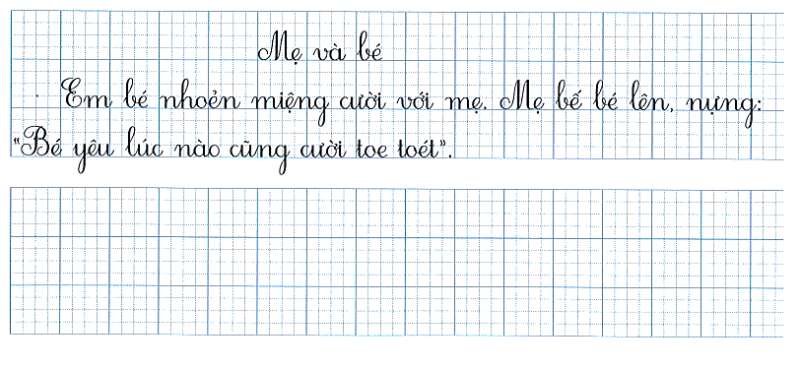 Mẹ và bé
Em bé nhoẻn miệng cười với mẹ. Mẹ bế bé lên, nựng:
"Bé yêu lúc nào cũng cười toe toét".